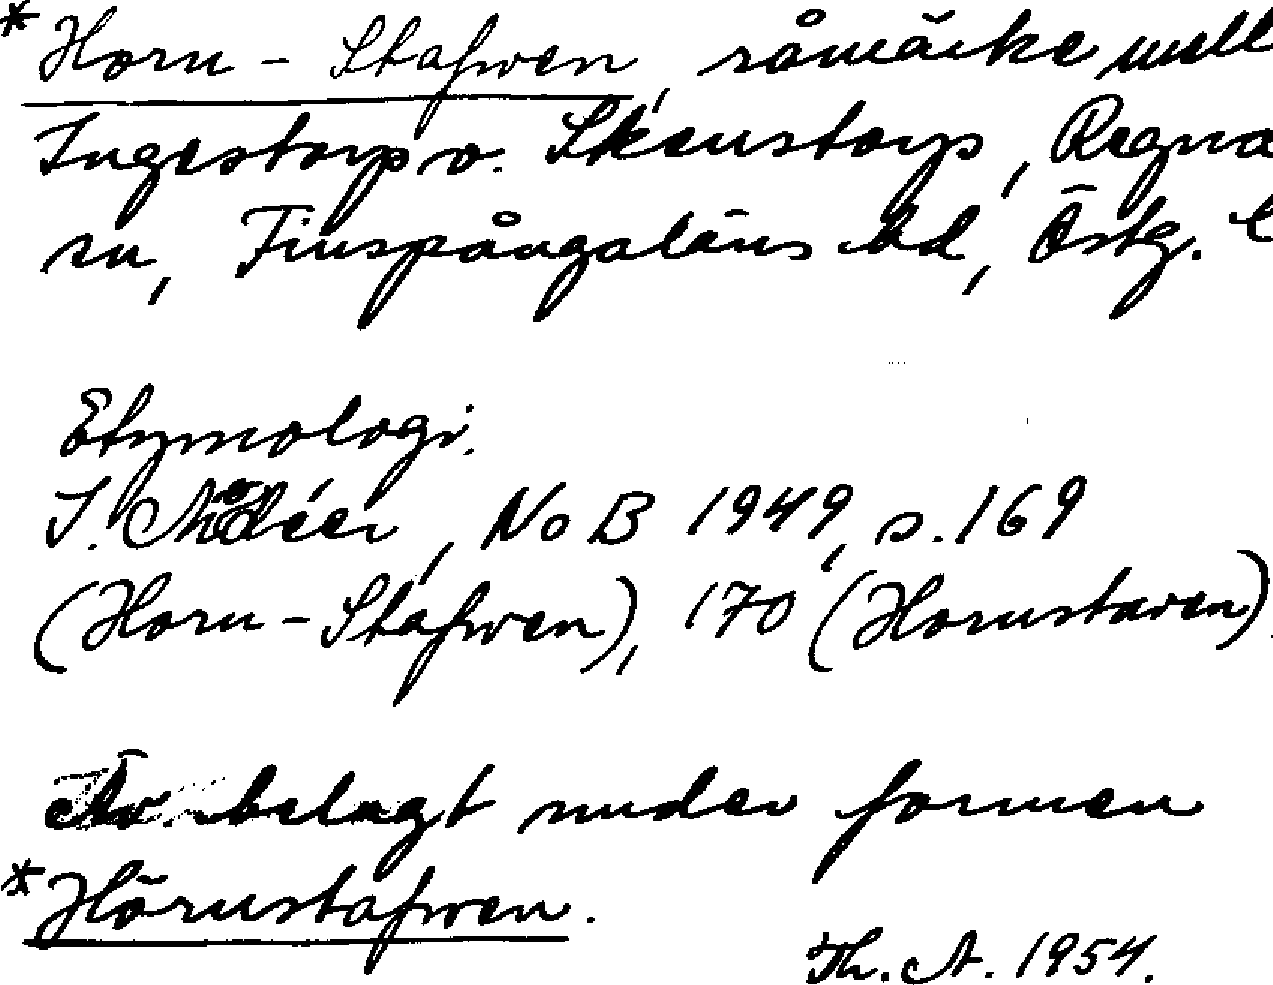 * Horn - Stafwen, råmärke mell
Ingestorp o. Skenstorp, Regna
sn, Finspångaläns hd, Östg. l
Etymologi.
I. Modéer, NoB 1949, s. 169
(Horn-Stafwen), 170 (Hornstaven)
Äv. belagt under formen
* Hörnstafwen.
Th. A. 1954.